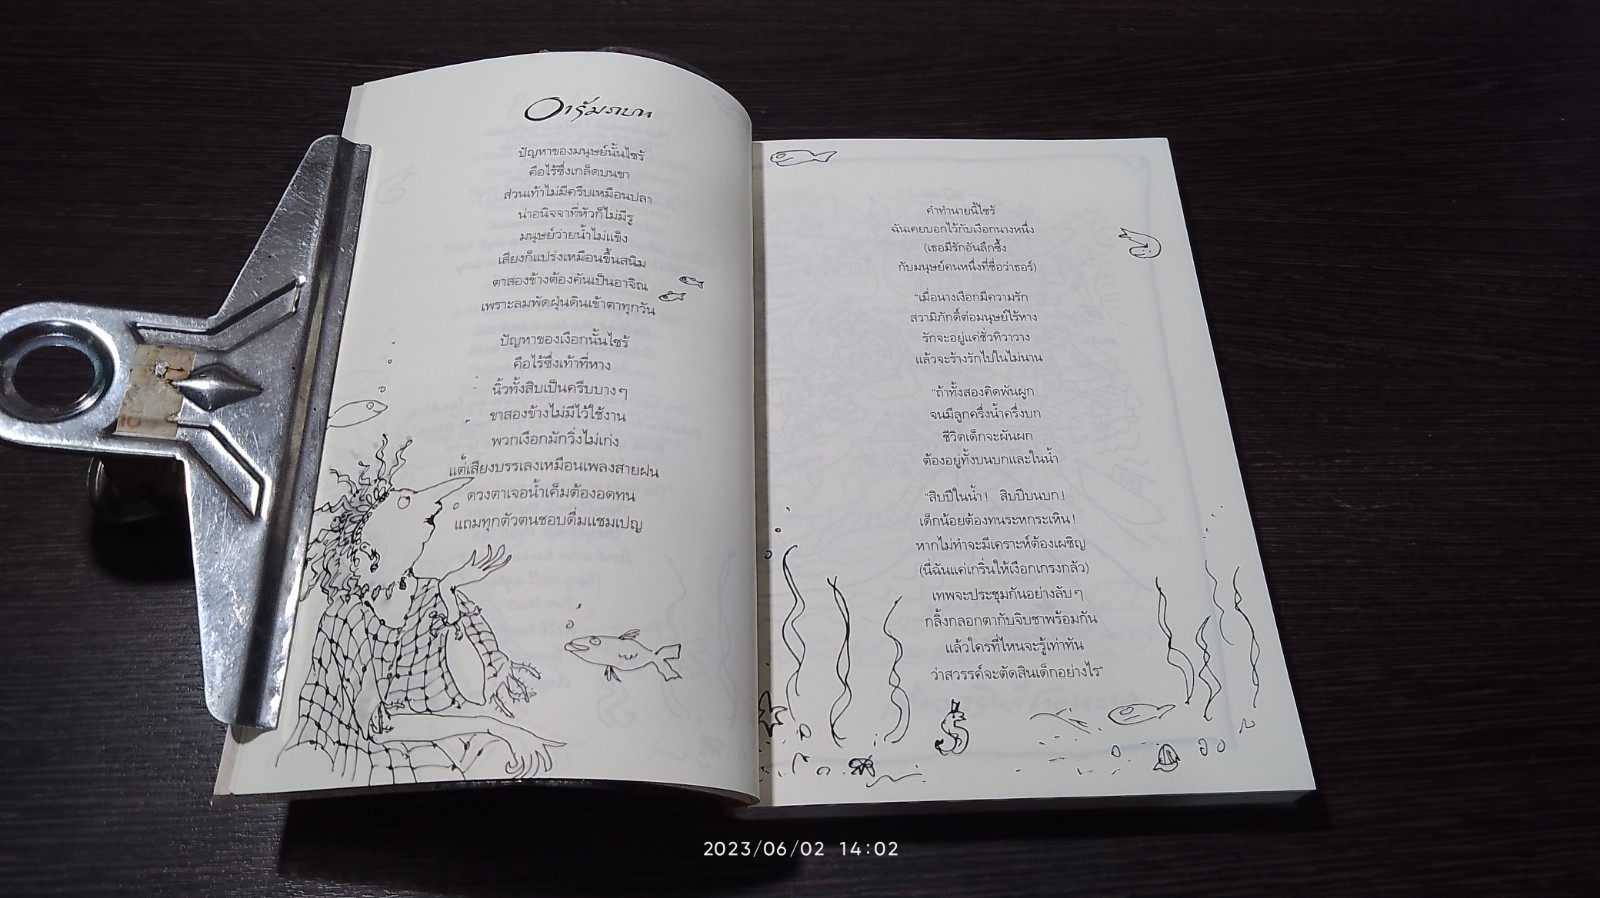 อารัมภบท
ปัญหาของมนุษย์นั้นไซร้
คือไร้ซึ่งเกล็ดบนขา
ส่วนเท้าไม่มีครีบเหมือนปลา
น่าอนิจจาที่หัวก็ไม่มีรู
มนุษย์ว่ายน้ำไม่แข็ง
เสียงก็แปร่งเหมือนขึ้นสนิม
ตาสองข้างต้องคันเป็นอาจิณ
เพราะลมพัดฝุ่นดินเข้าตาทุกวัน
ปัญหาของเงือกนั้นไซร้
คือไร้ซึ่งเท้าที่หาง
นิ้วทั้งสิบเป็นครีบบางๆ
ขาสองข้างไม่มีไว้ใช้งาน
พวกเงือกมักวิ่งไม่เก่ง
แต่เสียงบรรเลงเหมือนเพลงสายฝน
ดวงตาเจอน้ำเค็มต้องอดทน
แถมทุกตัวตนชอบดื่มแชมเปญ
คำทำนายนี้ไซร้
ฉันเคยบอกไว้กับเงือกนางหนึ่ง
(เธอมีรักอันลึกซึ้ง
กับมนุษย์คนหนึ่งที่ชื่อว่าธอร์)
"เมื่อนางเงือกมีความรัก
สวามิภักดิ์ต่อมนุษย์ไร้หาง
รักจะอยู่แค่ชั่วทิวาวาง
แล้วจะร้างรักไปในไม่นาน
"ถ้าทั้งสองคิดพันผูก
จนมีลูกครึ่งน้ำครึ่งบก
ชีวิตเด็กจะผันผก
ต้องอยู่ทั้งบนบกและในน้ำ
"สิบปีในน้ำ! สิบปีบนบก!
เด็กน้อยต้องทนระหกระเหิน!
หากไม่ทำจะมีเคราะห์ต้องเผชิญ
(นี่ฉันแค่เกริ่นให้เงือกเกรงกลัว)
เทพจะประชุมกันอย่างลับๆ
กลิ้งกลอกตากับจิบชาพร้อมกัน
แล้วใครที่ไหนจะรู้เท่าทัน
ว่าสวรรค์จะตัดสินเด็กอย่างไร"
2023/06/02 14:02